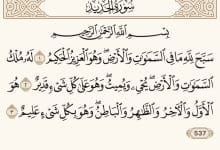 سُورَةُ الْحَدِيدِ
بِسْمِ اللَّهِ الرَّحْمَٰنِ الرَّحِيمِ
سَبَّحَ لِلَّهِ مَا فِي السَّمَٰوَٰتِ وَالْأَرْضِ ۖ وَهُوَ الْعَزِيزُ الْحَكِيمُ ١ لَهُۥ مُلْكُ
السَّمَٰوَٰتِ وَالْأَرْضِ ۖ يُحْيِۦ وَيُمِيتُ ۖ وَهُوَ عَلَىٰ كُلِّ شَيْءٍ قَدِيرٌ ٢ هُوَ
الْأَوَّلُ وَالْآخِرُ وَالظَّٰهِرُ وَالْبَاطِنُ ۖ وَهُوَ بِكُلِّ شَيْءٍ عَلِيمٌ ٣
537